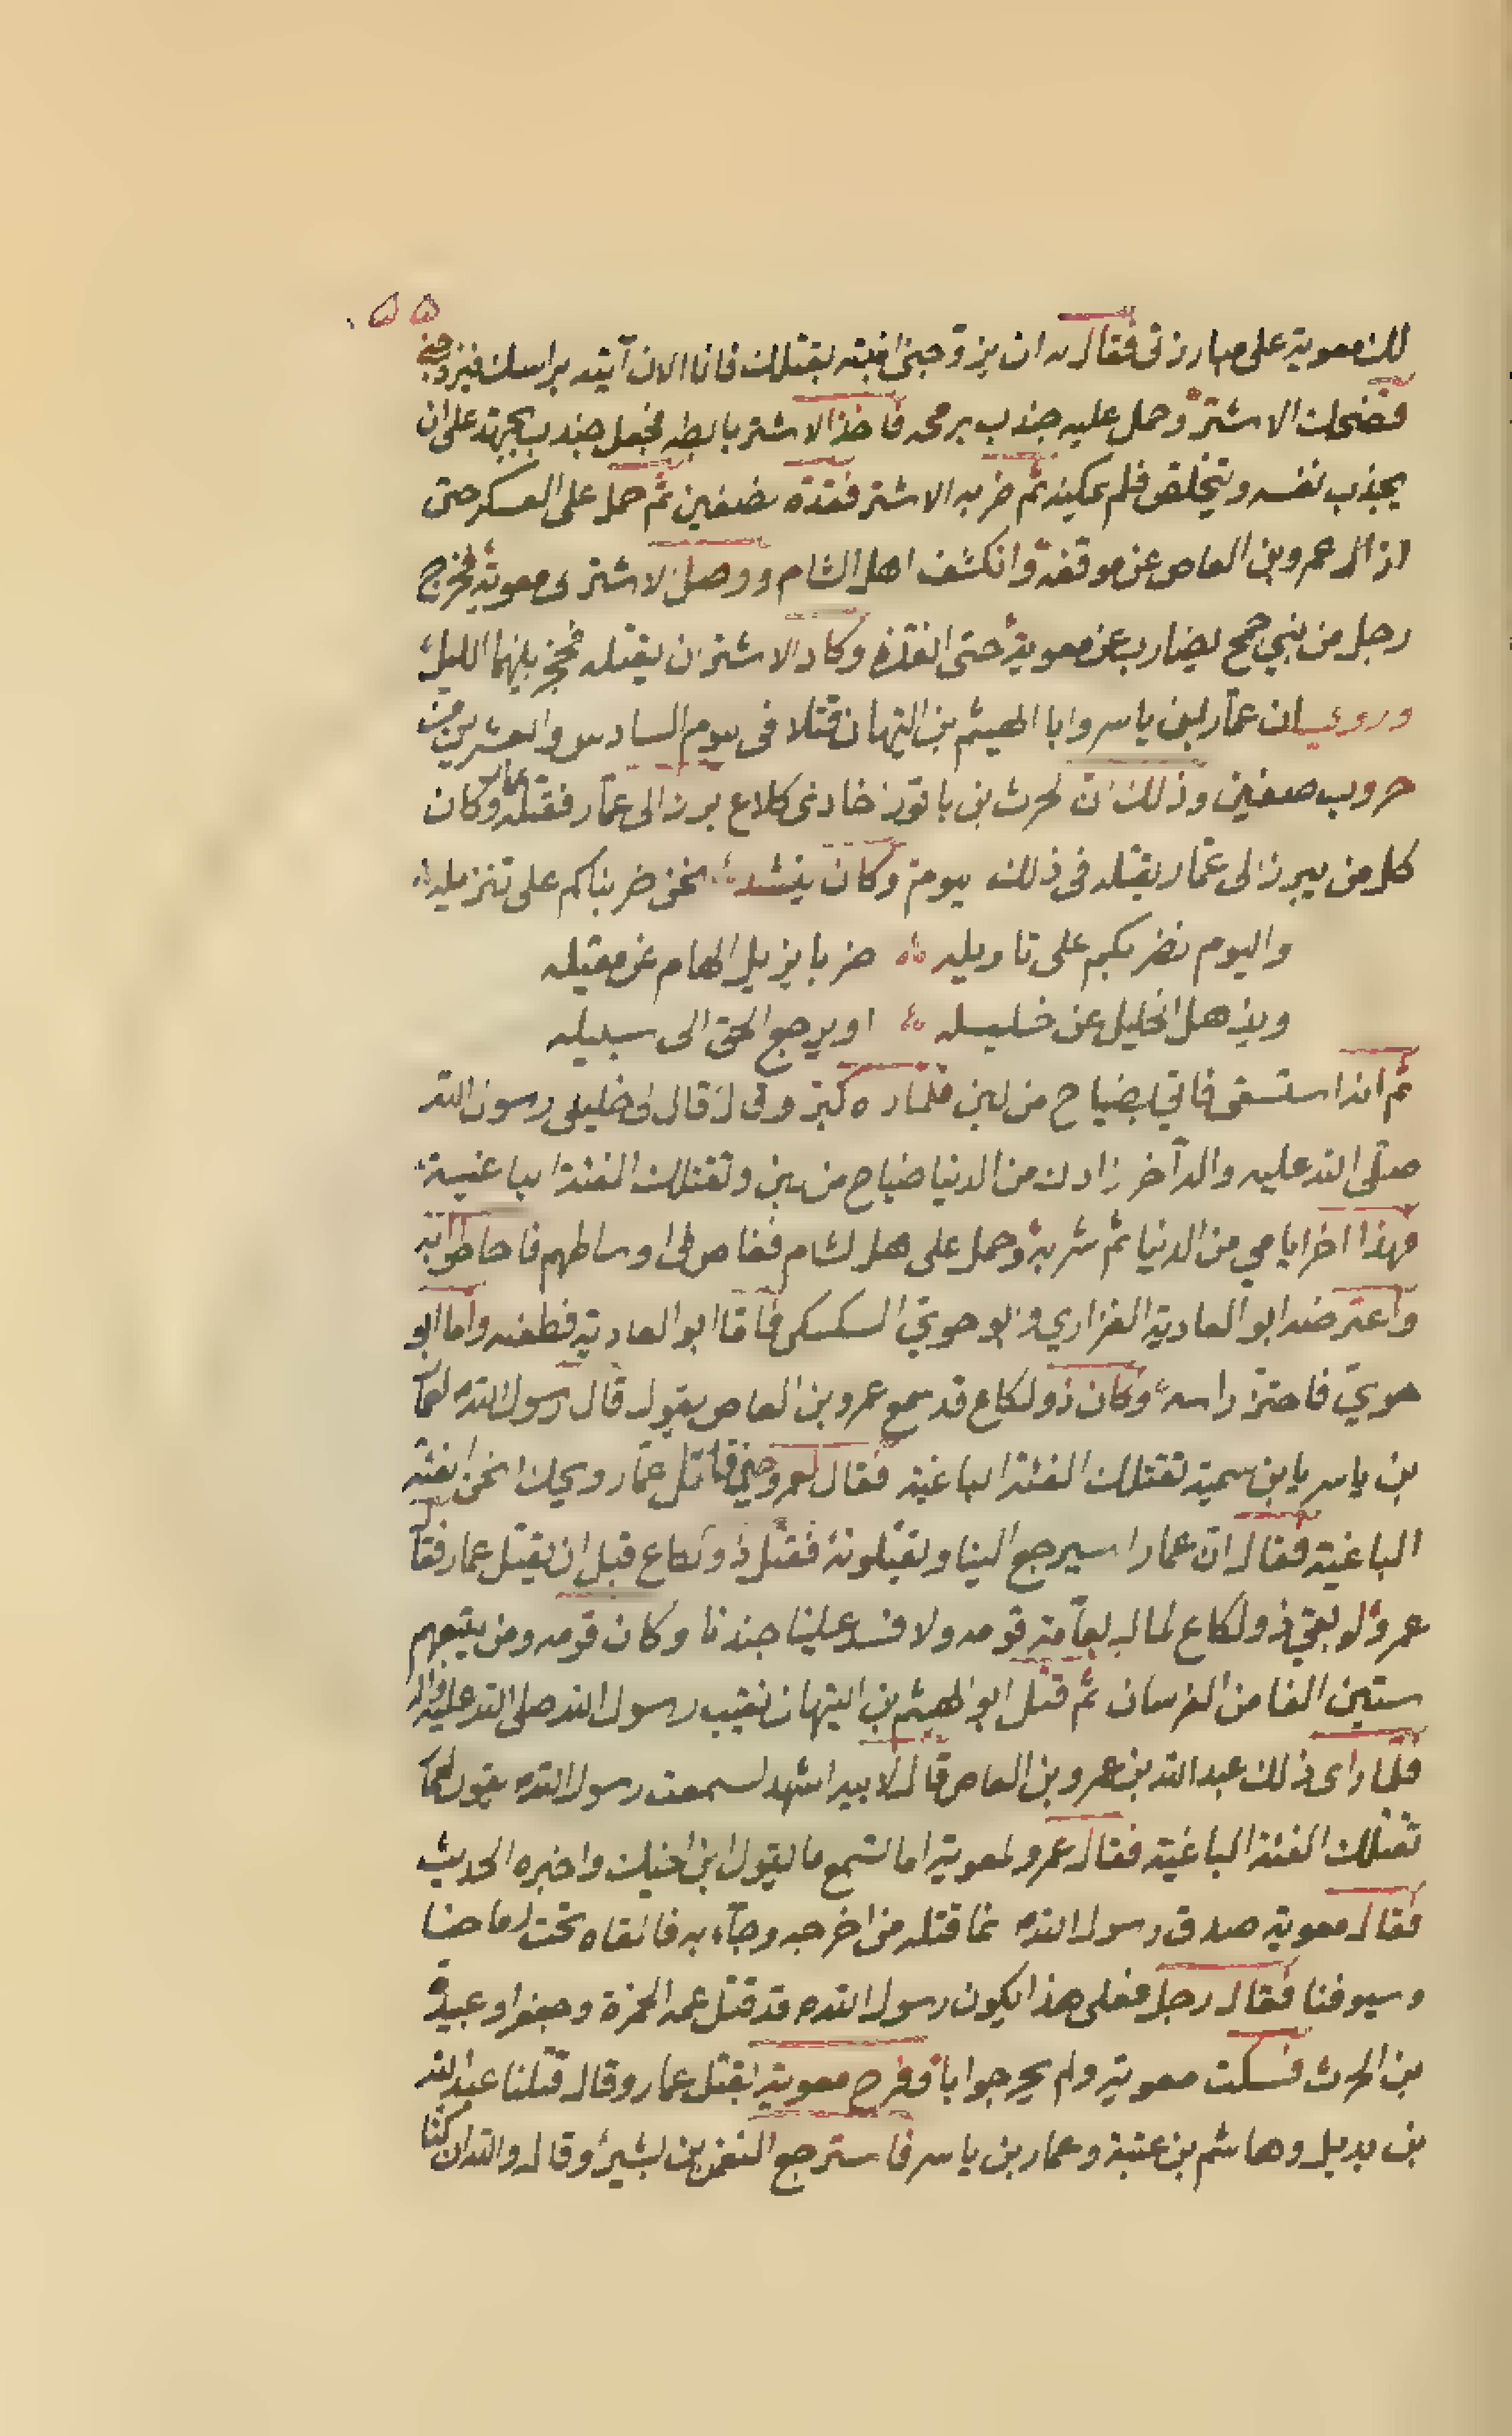 ٥٥
لك معوية على مبارزتى فقال ان يزوجنى ابنته بقتلك فانا الان آتيه براسك فيزوجنى
فضحك الاشتر وحمل عليه جندب برمحه فاخذ الاشتر بابطه فجعل جندب يجهد على ان
يجذب نفسه ويتخلص فلم يمكنه ثم ضربه الاشتر فقده نصفين ثم حمل على العسكر حتى
ازال عمرو بن العاص عن موقفه وانكشف اهل الشام ووصل الاشتر الى معوية فخرج
رجل من بني جمح يضارب عن معوية حتى انقذه وكاد الاشتر ان يقتله فحجز بينهما الليل
وروى ان عمار بن ياسر وابا الهيثم بن التيهان قتلا فى يوم السادس والعشرين من
حروب صفين وذلك ان الحرث بن باقور اخا ذى كلاع برز الى عمار فقتله عمار وكان
كل من يبرز الى عمار يقتله فى ذلك يومه وكان ينشد نحن ضربناكم على تنزيله
واليوم نضربكم على تاويله ضربا يزيل الهام عن مقيله
ويذهل الخليل عن خليله او يرجع الحق الى سبيله
ثم انه استسقى فاتى بضياح من لبن فلما راه كبر وقال قال لى خليلى رسول الله
صلى الله عليه واله آخر زادك من الدنيا ضياح من لبن وتقتلك الفئة الباغية
فهذا اخر ايامي من الدنيا ثم شربه وحمل على اهل الشام فغاص فى اوساطهم فاحاطوا به
واعترضه ابو العادية الفزاري وابو حوي السكسكى فاما ابو العادية فطعنه واما ابو
حوي فاحتز راسه وكان ذو الكلاع قد سمع عمرو بن العاص يقول قال رسول الله لعمار
بن ياسر يا بن سمية تقتلك الفئة الباغية فقال لعمرو حين قاتل عمار ويحك انحن الفئة
الباغية فقال ان عمارا سيرجع الينا ويقتلونه فقتل ذو الكلاع قبل ان يقتل عمار فقال
عمرو لو بقى ذو الكلاع لمال بعامة قومه ولافسد علينا جندنا وكان قومه ومن يتبعهم
ستين الفا من الفرسان ثم قتل ابو الهيثم بن التيهان نقيب رسول الله صلى الله عليه واله
فلما راى ذلك عبد الله بن عمرو بن العاص قال لابيه اشهد لسمعت رسول الله يقول لعمار
تقتلك الفئة الباغية فقال عمرو لمعوية اما تسمع ما يقول ابن اخيك واخبره الحديث
فقال معوية صدق رسول الله انما قتله من اخرجه وجاء به فالقاه تحت رماحنا
وسيوفنا فقال رجل فعلى هذا يكون رسول الله قد قتل عمه الحمزة وجعفرا وعبيدة
بن الحرث فسكت معوية ولم يحر جوابا ففرح معوية بقتل عمار وقال قتلنا عبد الله
بن بديل وهاشم بن عتبة وعمار بن ياسر فاسترجع النعمن بن بشير وقال والله ان كنا